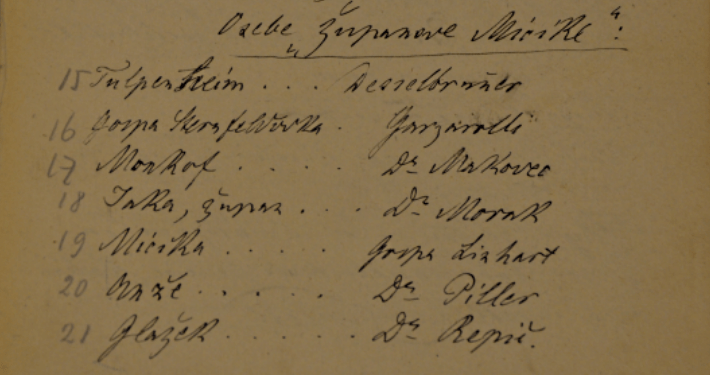 Osebe „Županove Micike“:
15 Tulpenheim . . . Desselbruner
16 Gospa Sternfeldovka . Garzarolli
17 Monkof . . . . . Dr Makovec
18 Jaka, župan . . . Dr Morak
19 Micika . . . . . Gospa Linhart
20 Anže . . . . . Dr Piller
21 Glažek . . . . . . Dr Repič.